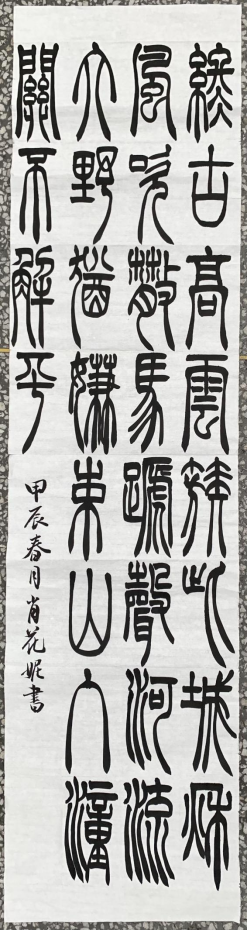 終古高雲簇此城秋
風吹散馬蹏聲河流
大野猶嫌束山入潼
關不解平
甲辰春月肖花妮書